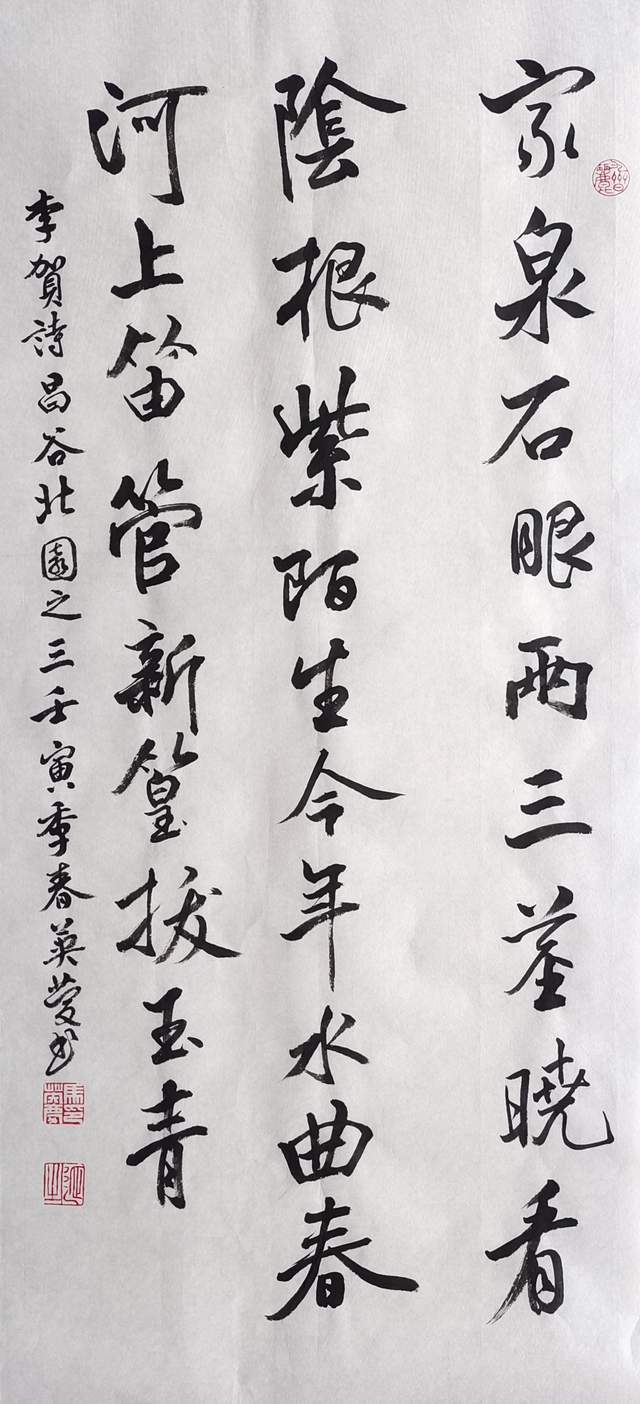 家泉石眼兩三茎曉看
陰根紫陌生今年水曲春
河上笛管新篁拔玉青
李賀詩昌谷北園之三壬寅季春英蘷书